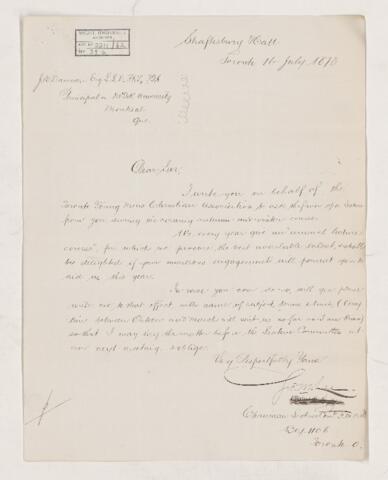 McGILL UNIVERSITY
ARCHIVES
ACC. NO.
REF.
Shaftesbury Hall
Toronto 16 July 1878
J W Dawson Esq LLD. FRS,
Principal McGill University
Montreal
Que.
Dear Sir,
I write you on behalf of the
Toronto Young Mens Christian Association to ask the favor of a lecture
from you during the coming autumn and winter course.
We every year give an "annual lecture
course", for which we procure the best available talent, &
be delighted if your numerous engagements will permit you to
aid us this year.
In case you can do so, will you please
write me to that effect with name of subject, terms & date (
time between October and March will with us so far
so that I may lay the matter before the Lecture Committee at
our next meeting & oblige.
Very Respectfully Yours
Chairman Lecture
Box 1106
Toronto O.